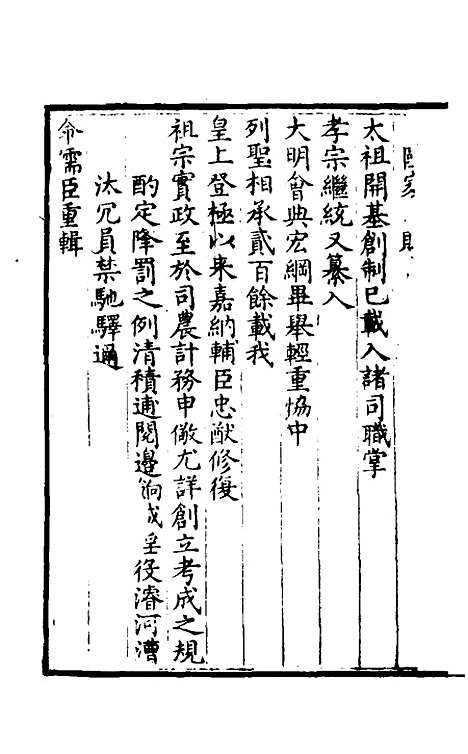 國家財
太祖開基創制已載入諸司職掌
孝宗繼統又纂入
大明會典宏綱畢舉輕重協中
列聖相承貳百餘載我
皇上登極以來嘉納輔臣忠猷修復
祖宗實政至於司農計務申儆尤詳創立考成之規
酌定降罰之例清積逋閱邊餉戍垂役濬河漕
汰冗員禁馳驛邇
令儒臣重輯